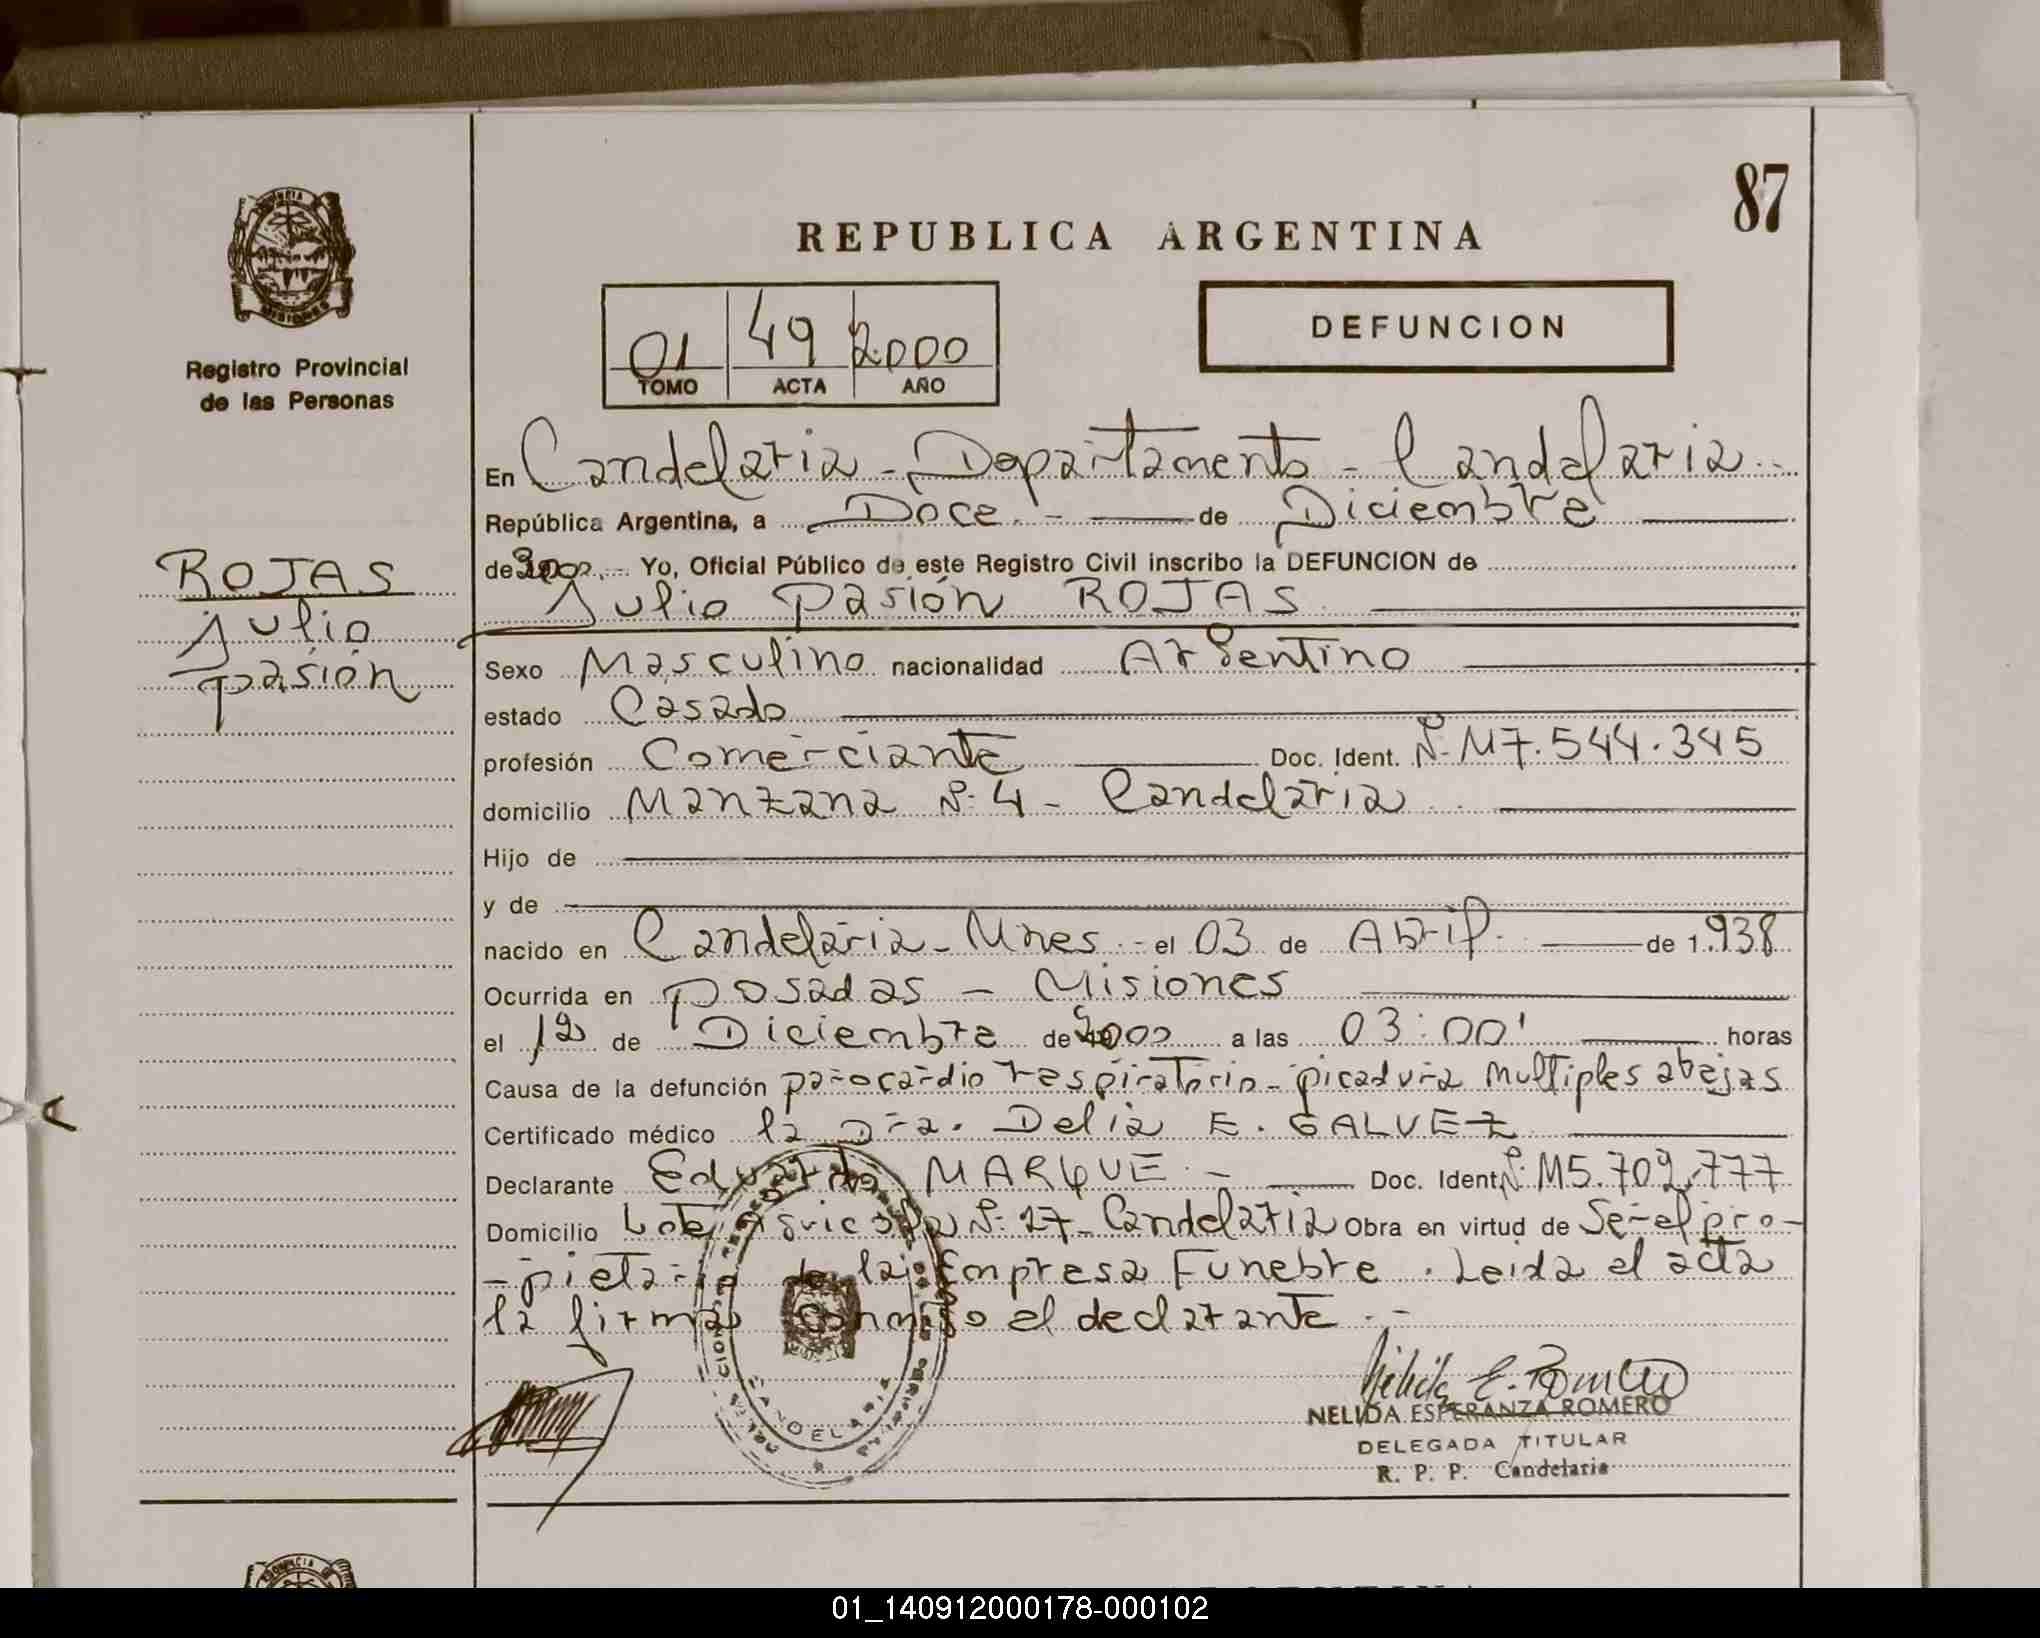 87
REPUBLICA ARGENTINA
DEFUNCION
01 49 2.000
TOMO ACTA AÑO
MISIONES
Registro Provincial
de las Personas
ROJAS
Julio
Pasión
En Candelaria - Departamento - Candelaria.-
República Argentina, a Doce.- de Diciembre
de 2.000.- Yo, Oficial Público de este Registro Civil inscribo la DEFUNCION de
Julio Pasión ROJAS.
Sexo Masculino nacionalidad Argentino
estado Casado
profesión Comerciante Doc. Ident. Nº M7.544.345
domicilio Manzana Nº 4 - Candelaria
Hijo de
y de
nacido en Candelaria - Mnes.- el 03 de Abril. de 1.938
Ocurrida en Posadas - Misiones
el 12 de Diciembre de 2000 a las 03:00' horas
Causa de la defunción parocardio respiratorio - picadura multiples abejas
Certificado médico la Dra. Delia E. GALVEZ
Declarante Eduardo MARQUE.- Doc. Ident. Nº M5.702.777
Domicilio Lote Agricola Nº 27 - Candelaria Obra en virtud de Ser el pro-
-pietario de la Empresa Funebre. Leida el acta
la firma conmigo el declarante.-
CANDELARIA
Nélida E. Romero
NELIDA ESPERANZA ROMERO
DELEGADA TITULAR
R. P. P. Candelaria
01_140912000178-000102